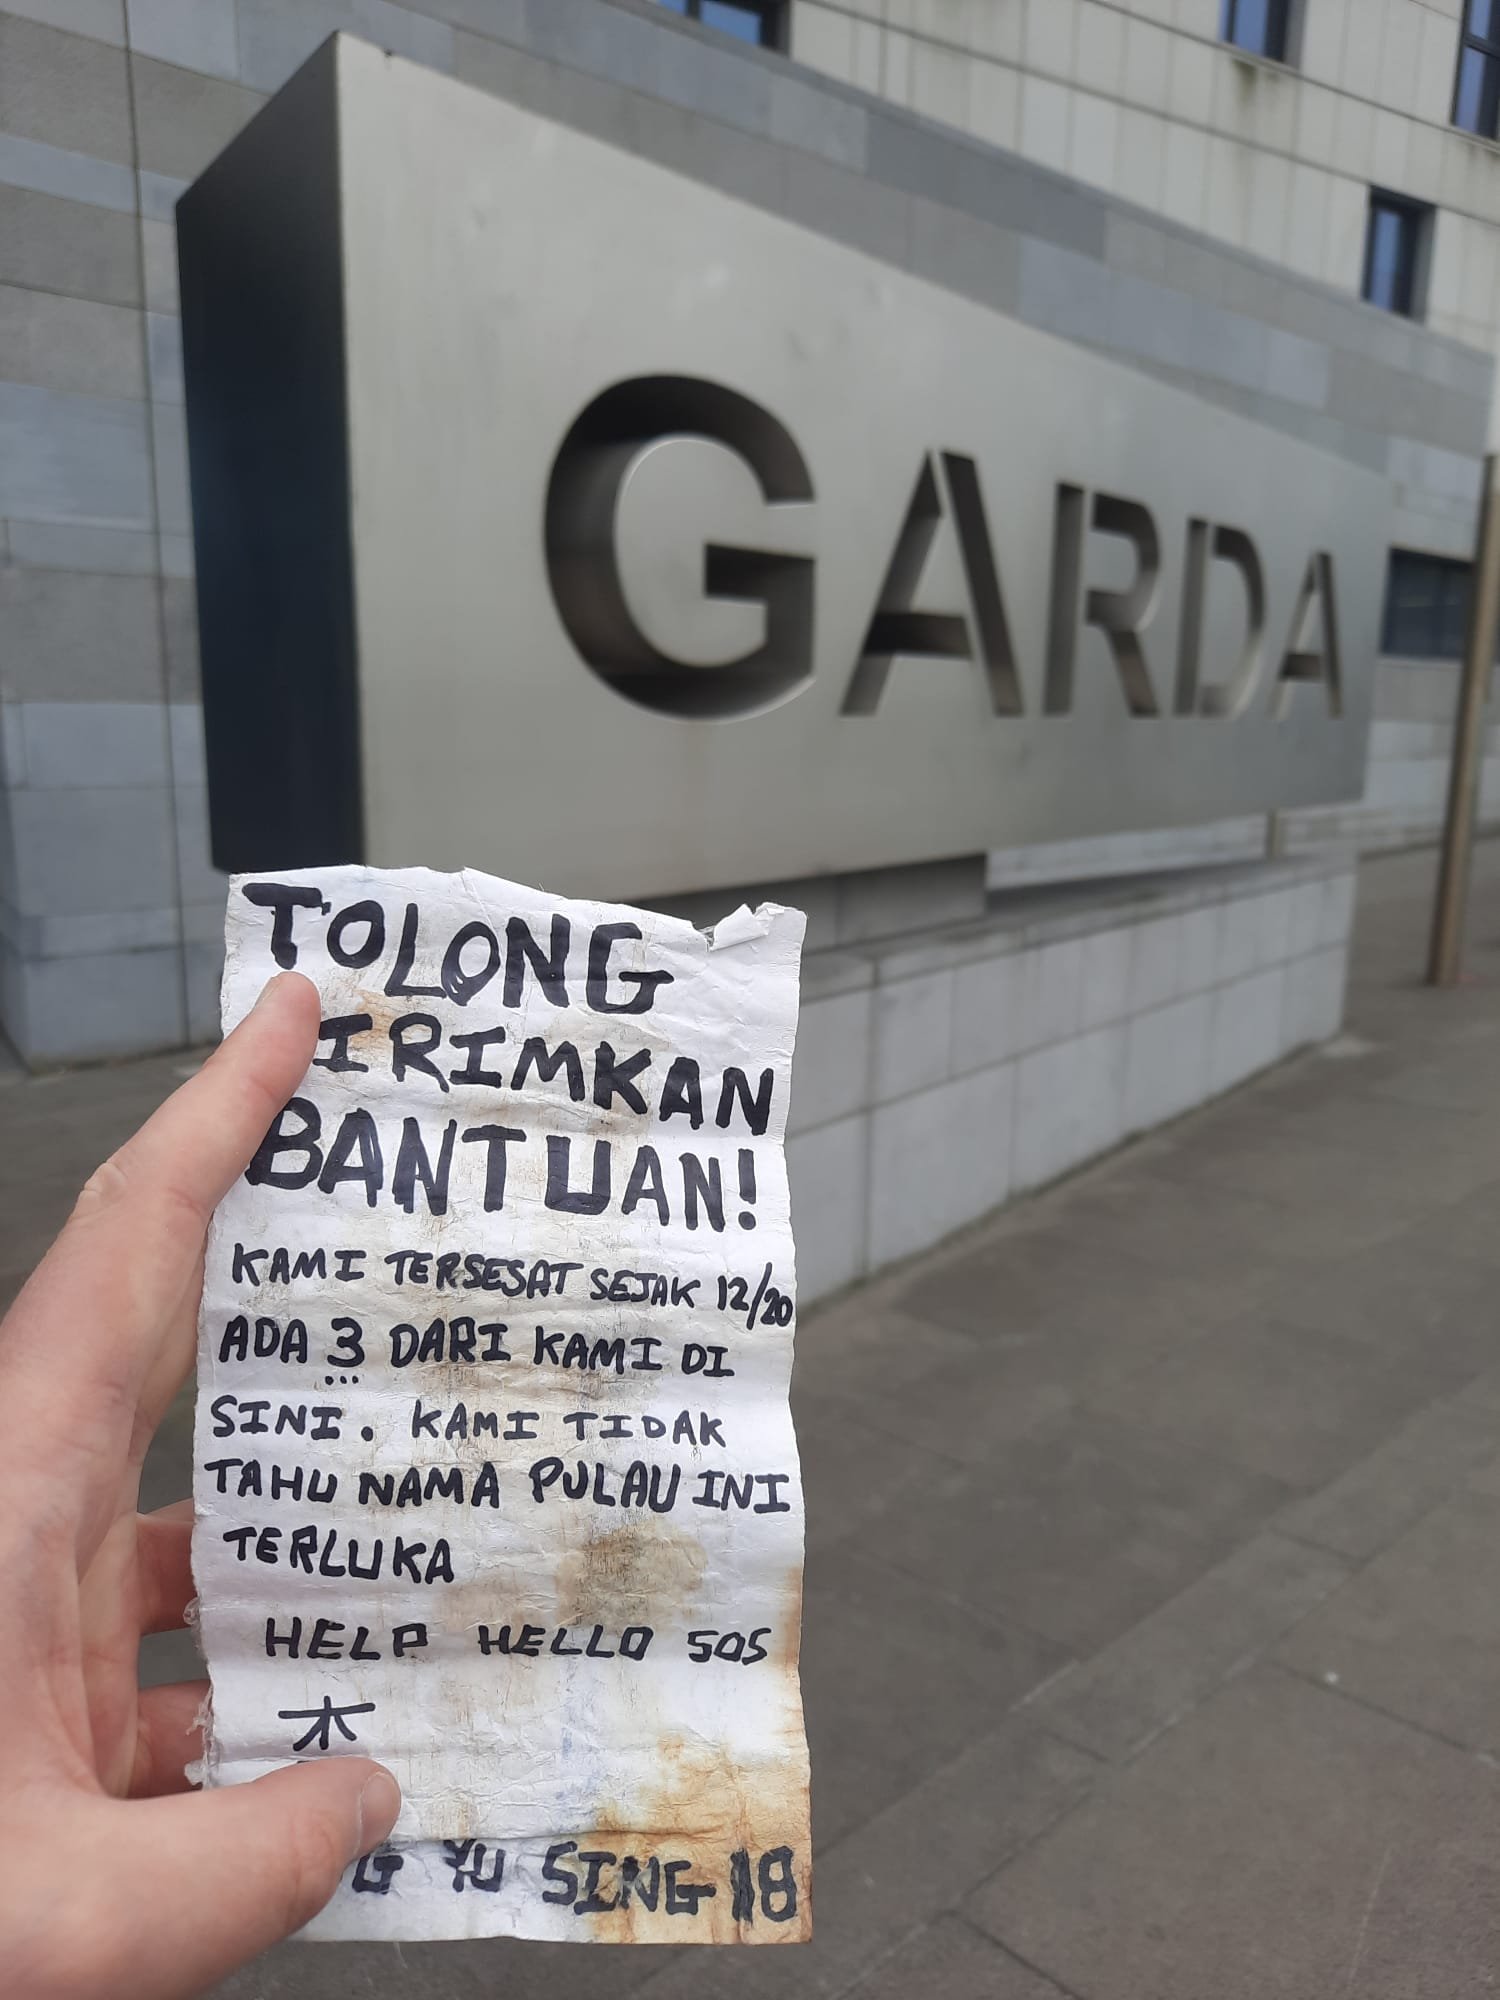 GARDA
TOLONG
IRIMKAN
BANTUAN!
KAMI TERSESAT SEJAK 12/20
ADA 3 DARI KAMI DI
SINI. KAMI TIDAK
TAHU NAMA PULAU INI
TERLUKA
HELP HELLO SOS
木
G YU SING 18